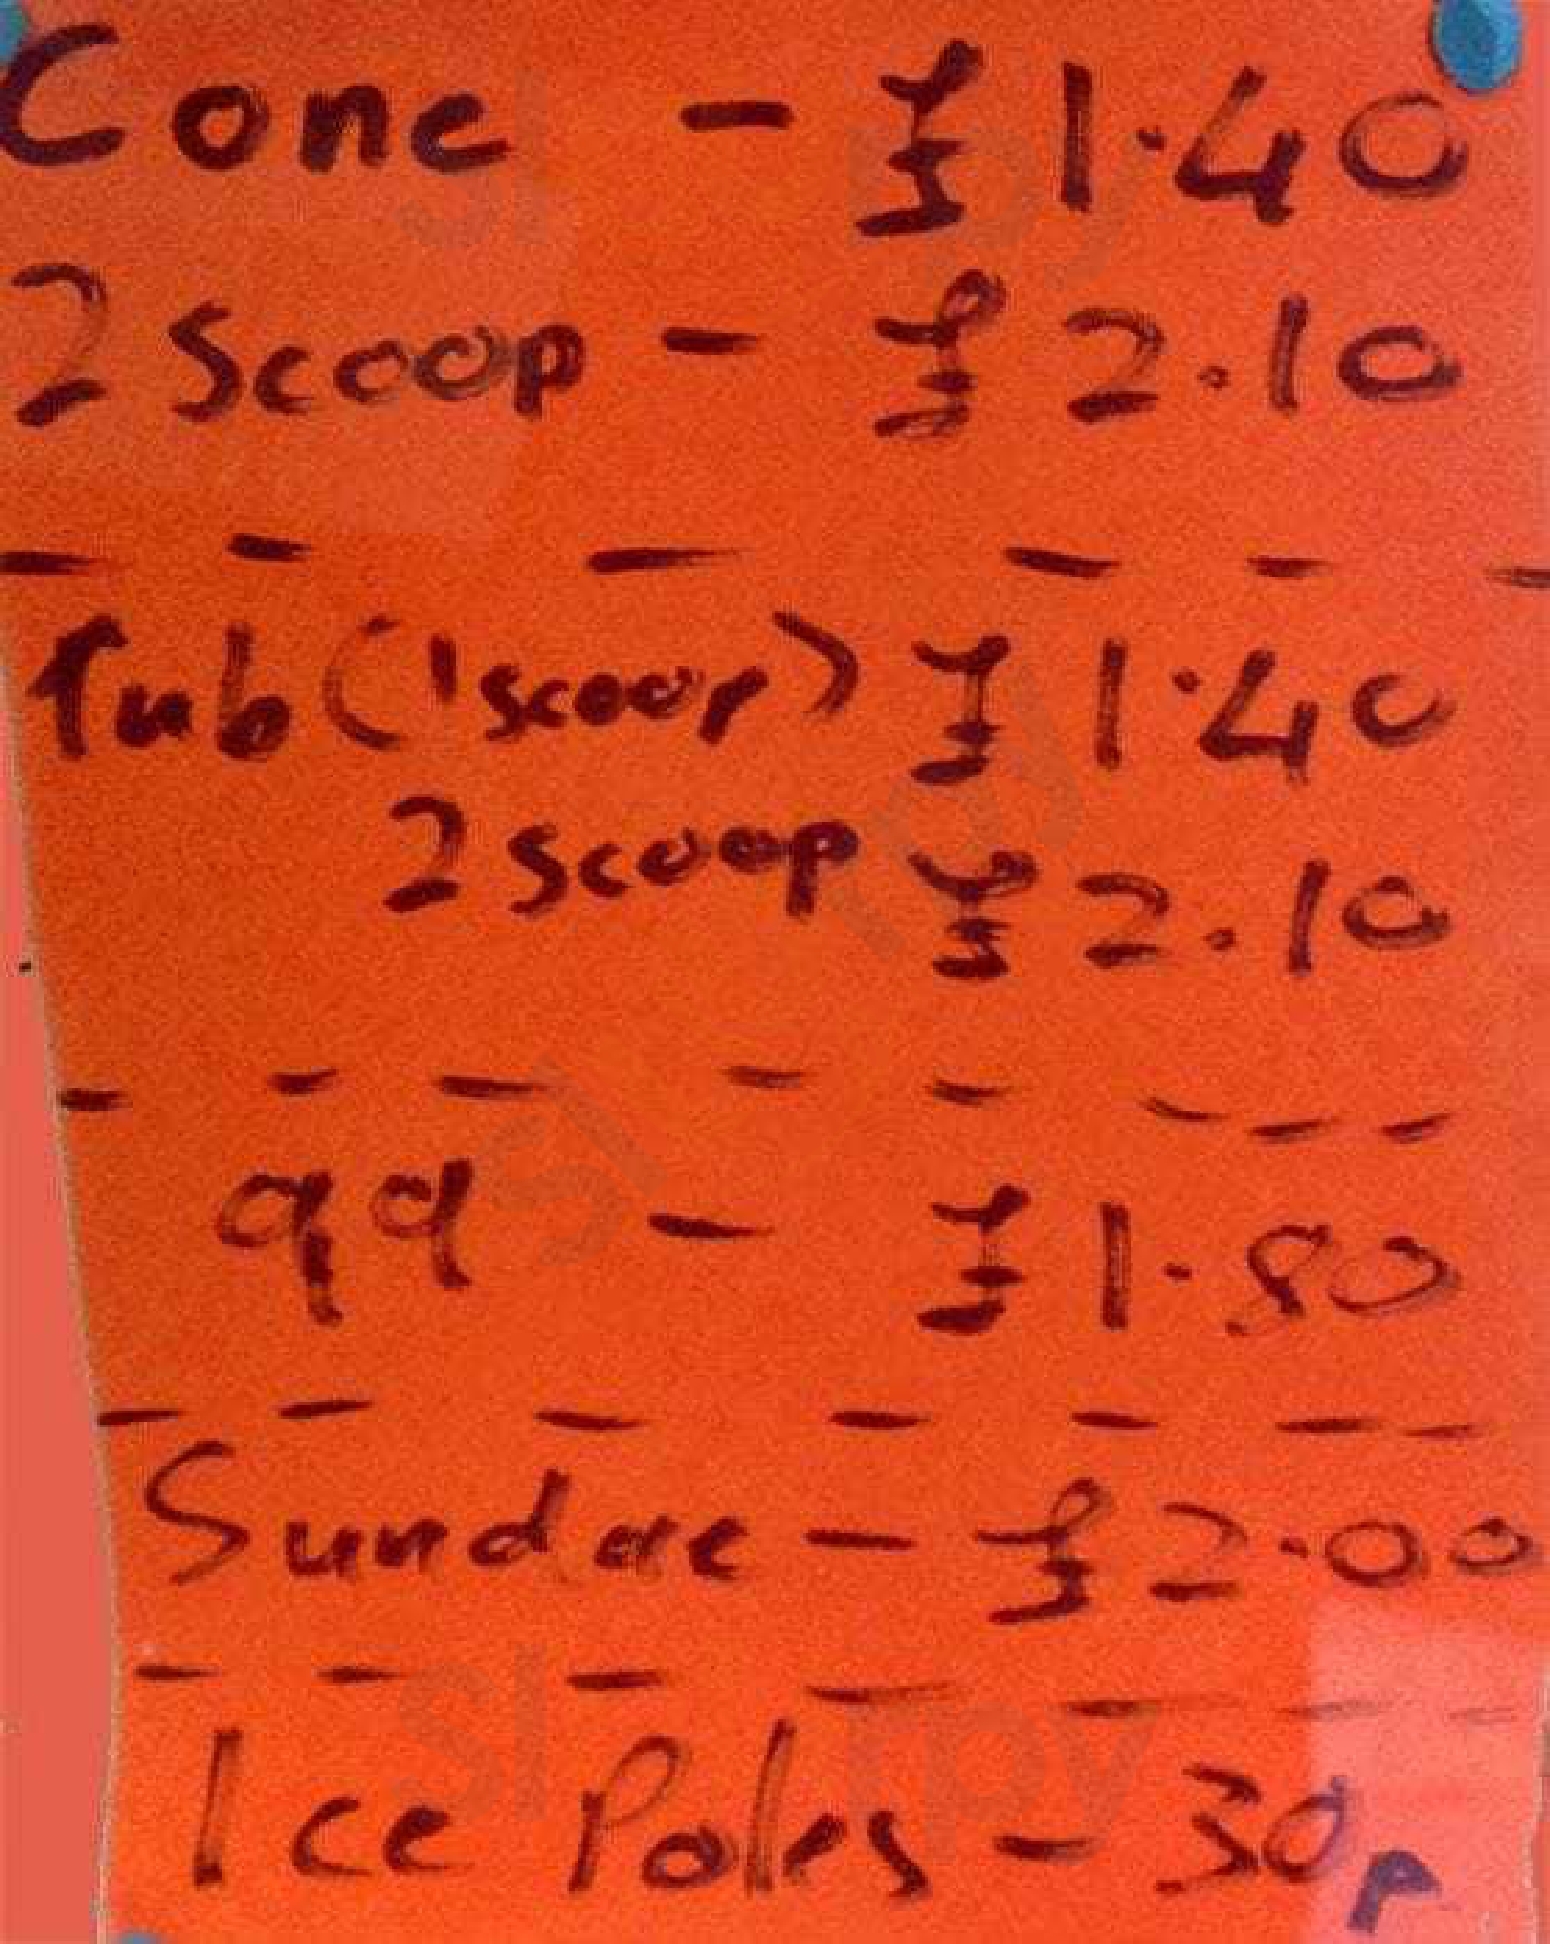 Cone - £1.40
2 Scoop - £2.10
Tub (1 scoop) £1.40
2 scoop £2.10
99 - £1.80
Sundae - £2.00
Ice Poles - 30p